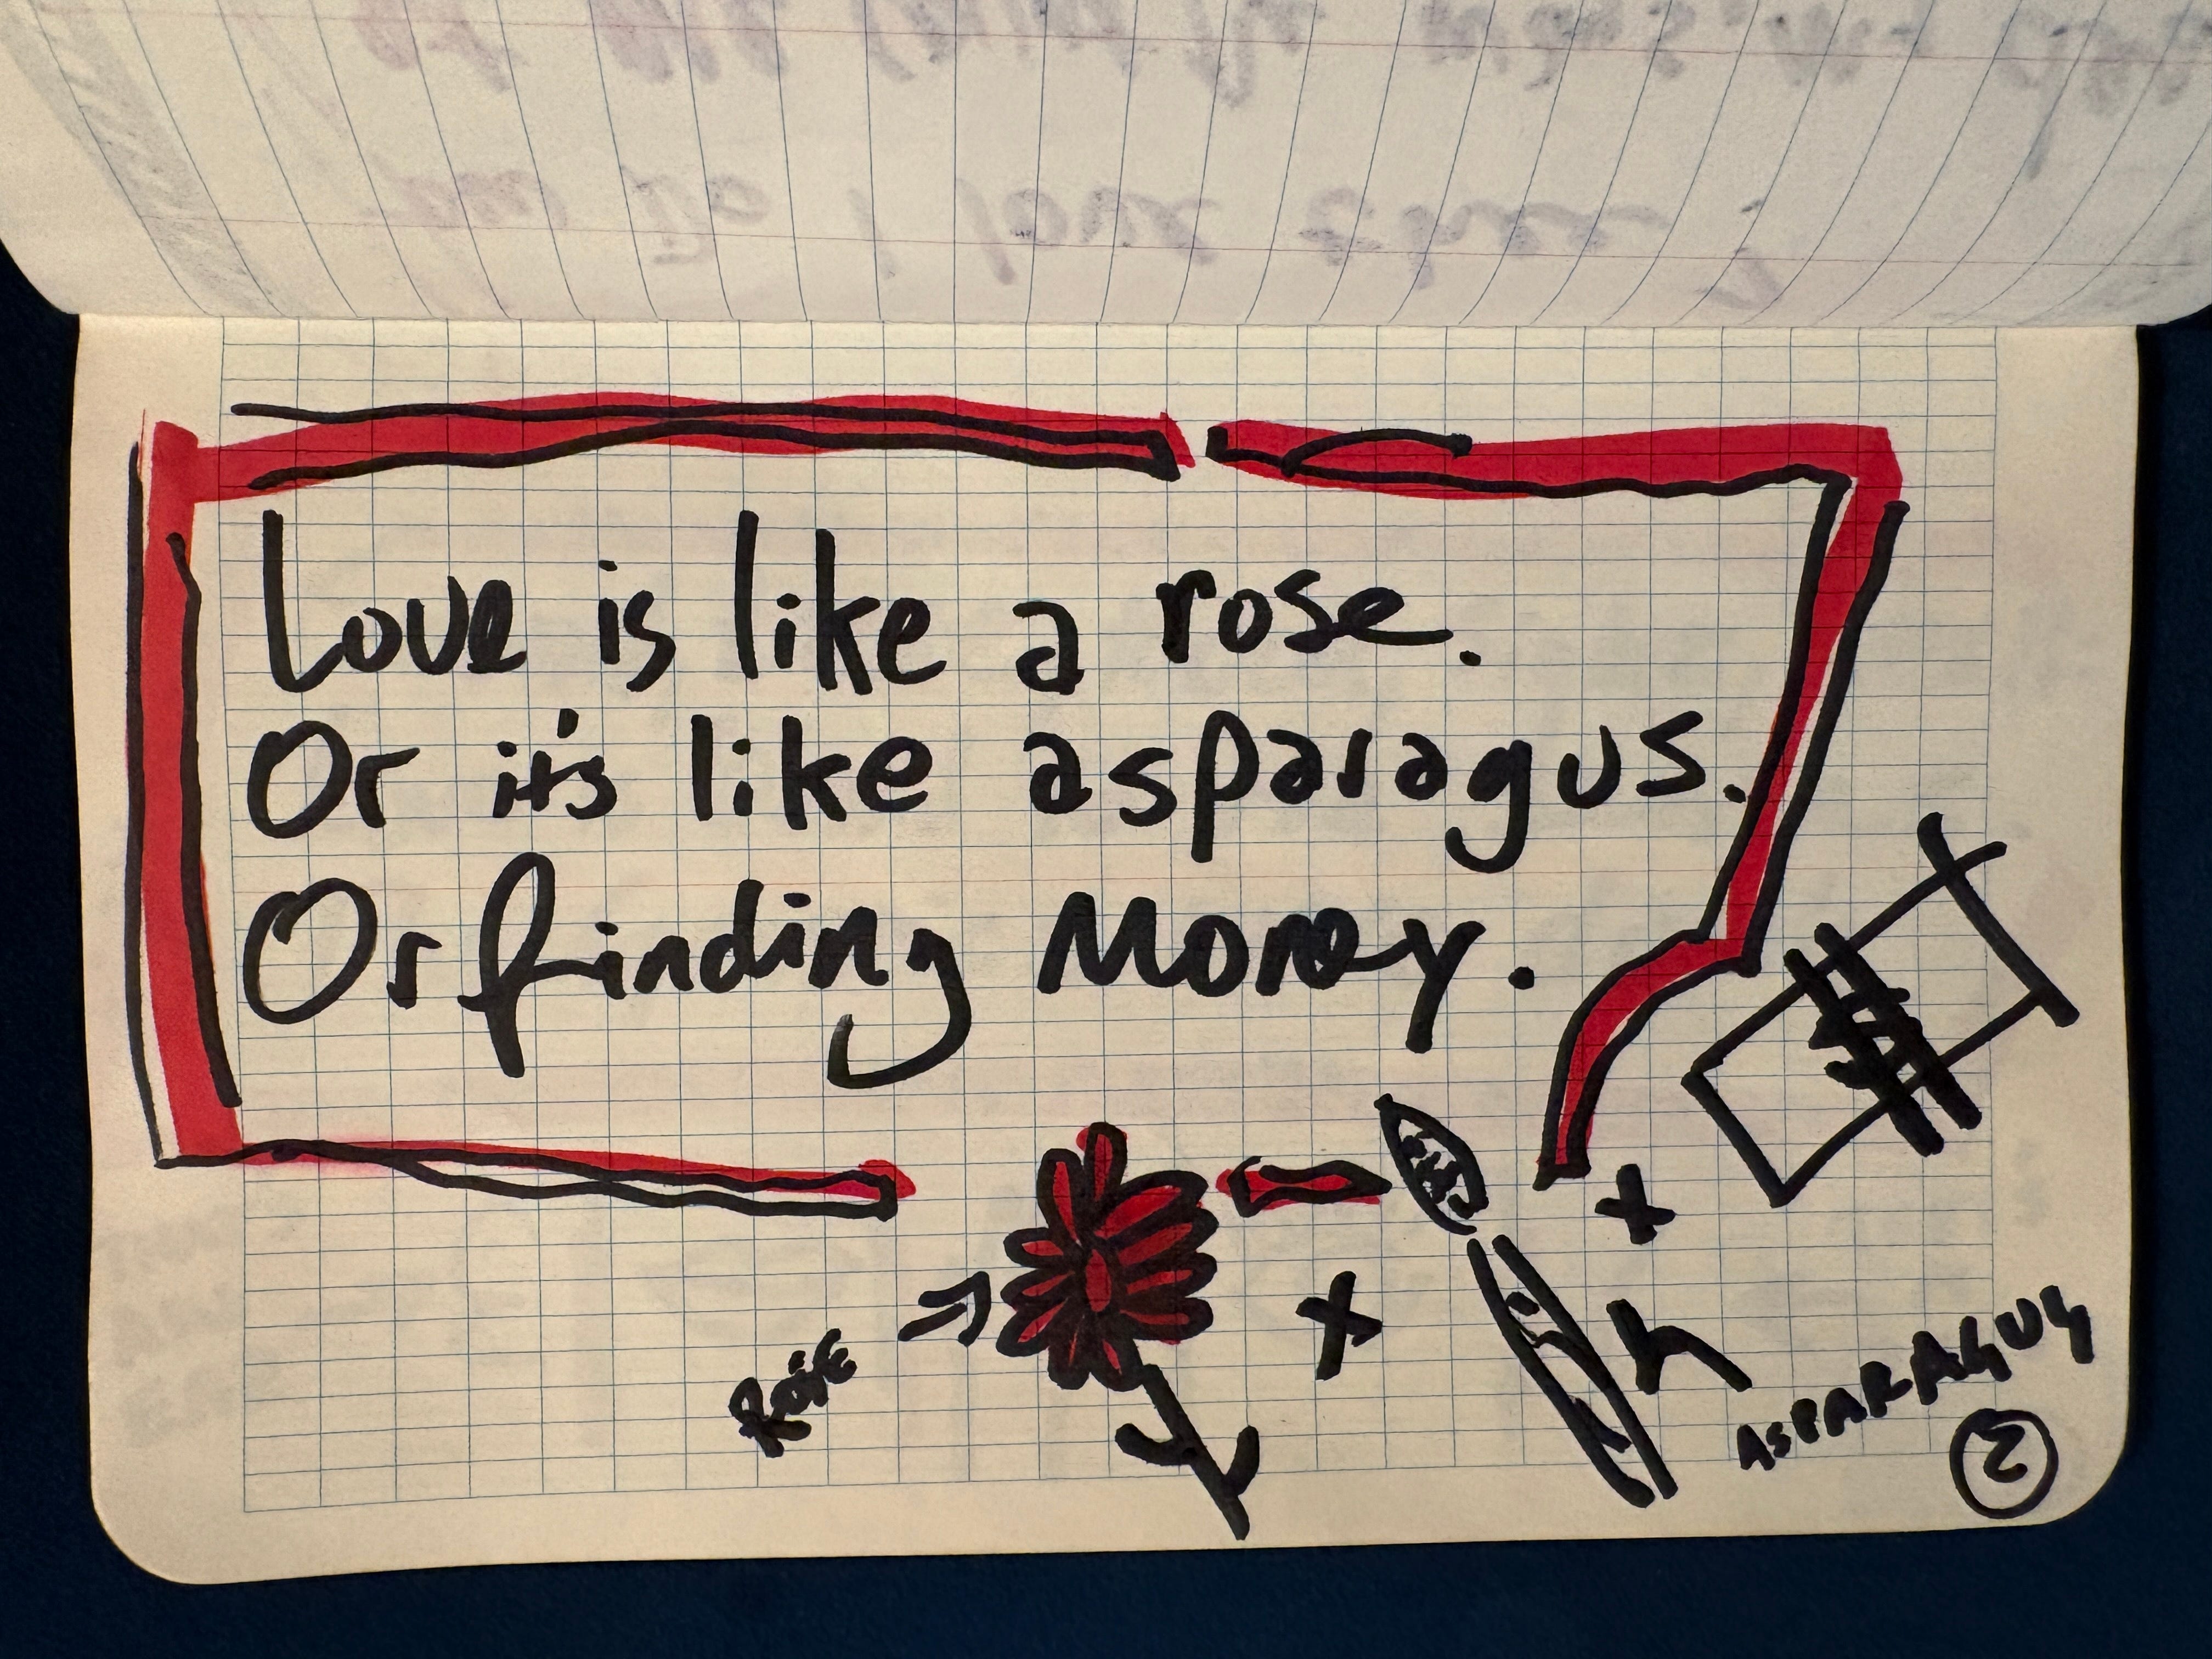 Love is like a rose.
Or it's like asparagus.
Or finding Money.
ROSE
ASPARAGUS
2